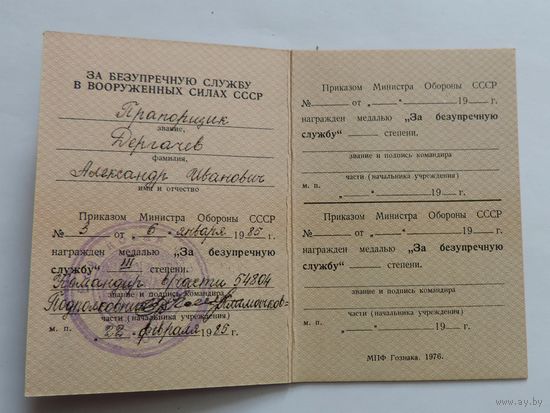 ЗА БЕЗУПРЕЧНУЮ СЛУЖБУ
В ВООРУЖЕННЫХ СИЛАХ СССР
Прапорщик
звание,
Дергачев
фамилия,
Александр Иванович
имя и отчество
Приказом Министра Обороны СССР
№ 3 от „ 6 “ января 1985 г.
награжден медалью „За безупречную
службу“ III степени.
Командир в/части 54804
звание и подпись командира
Подполковник
части (начальника учреждения)
м. п. „ 22 “ февраля 1985 г.
Приказом Министра Обороны СССР
№ от „ “ 19 г.
награжден медалью „За безупречную
службу“ степени.
звание и подпись командира
части (начальника учреждения)
м. п. „ “ 19 г.
Приказом Министра Обороны СССР
№ от „ “ 19 г.
награжден медалью „За безупречную
службу“ степени.
звание и подпись командира
части (начальника учреждения)
м. п. „ “ 19 г.
МПФ Гознака. 1976.
www.ay.by